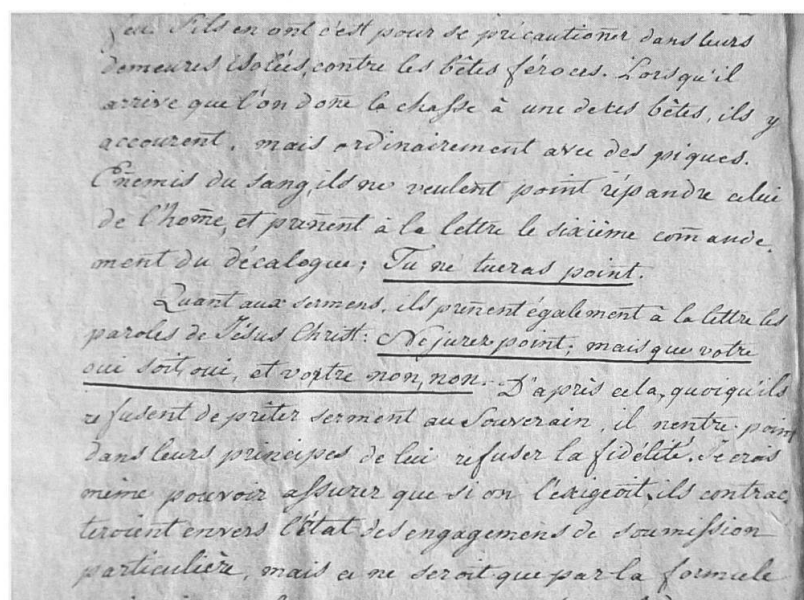 feu. S'ils en ont c'est pour se précautioner dans leurs
demeures isolées, contre les bêtes féroces. Lorsqu'il
arrive que l'on doñe la chasse à une de ces bêtes, ils y
accourent, mais ordinairement avec des piques.
Eñemis du sang, ils ne veulent point répandre celui
de l'hom̃e, et preñent à la lettre le sixième com̃ande-
ment du décalogue; Tu ne tueras point.
Quant aux sermens, ils preñent également à la lettre les
paroles de Jésus Christ: Ne jurez point; mais que votre
oui soit, oui, et votre non, non. D'après cela, quoiqu'ils
refusent de prêter serment au Souverain, il n'entre point
dans leurs principes de lui refuser la fidélité. Je crois
même pouvoir assurer que si on l'exigeoit, ils contrac-
teroient envers l'état des engagemens de soumission
particulière, mais ce ne seroit que par la formule